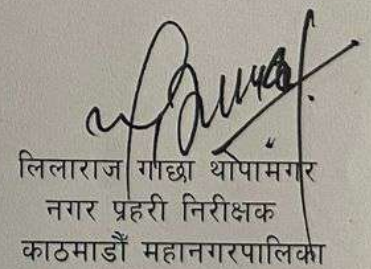 लिलाराज गाछा थापामगर
नगर प्रहरी निरीक्षक
काठमाडौँ महानगरपालिका